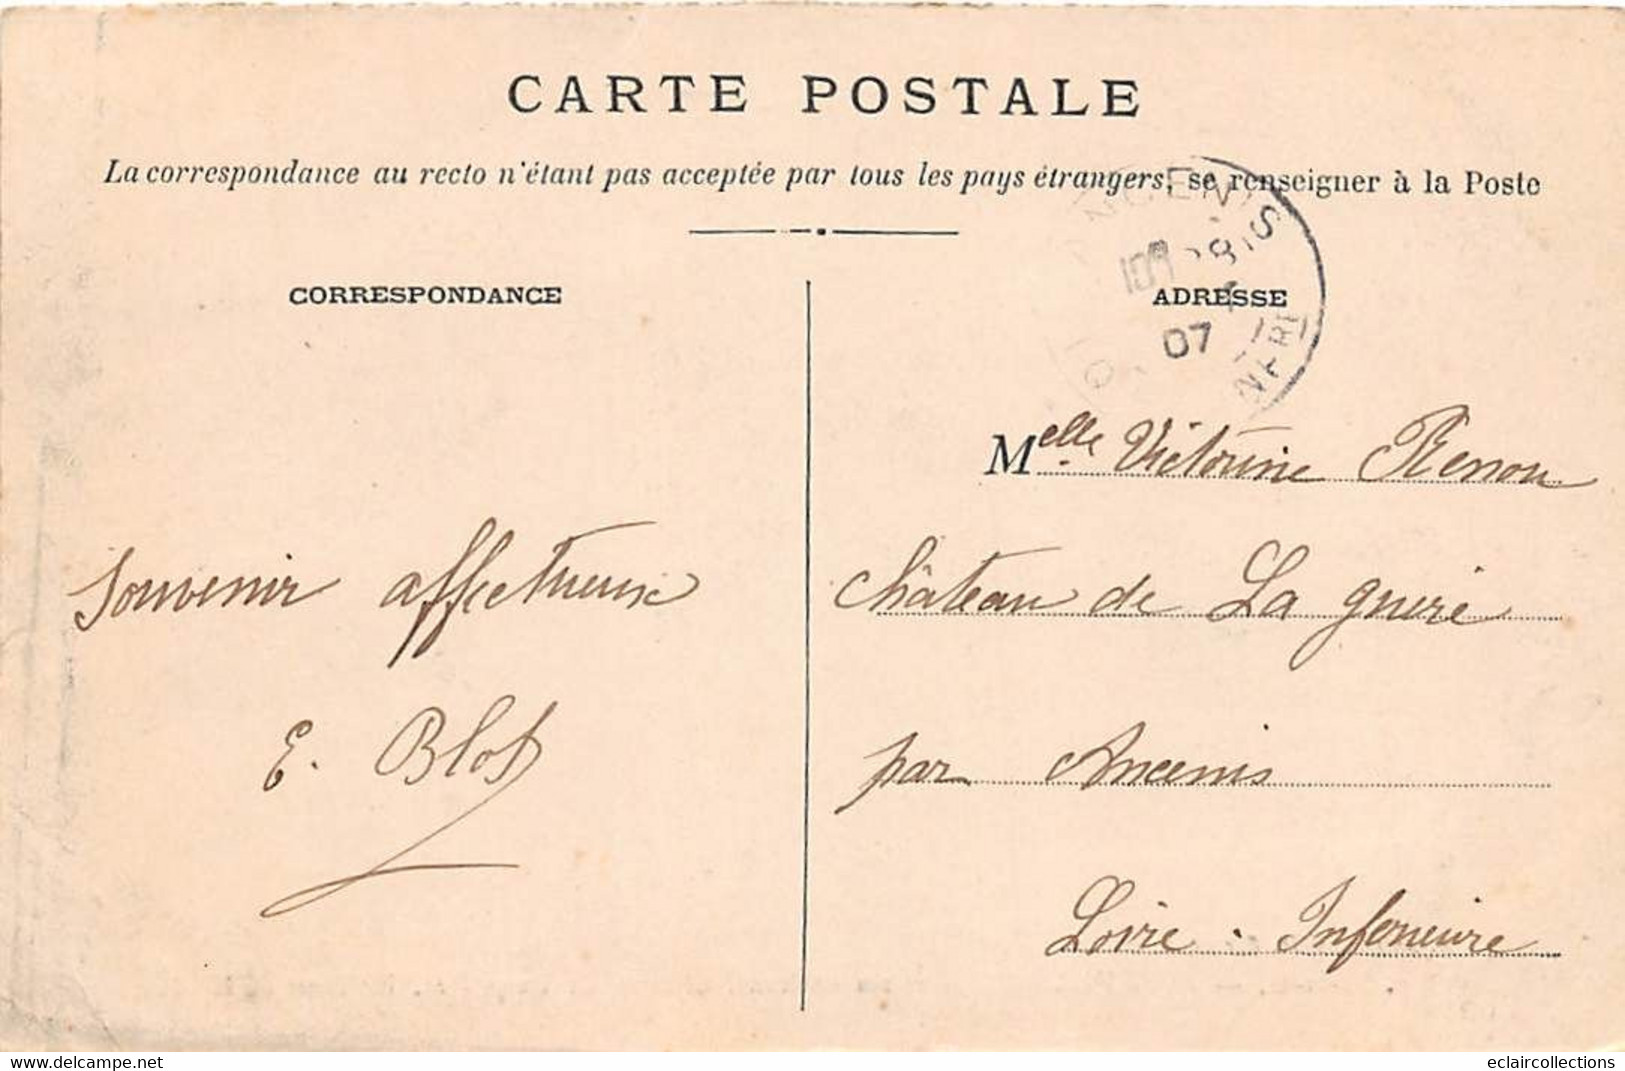 CARTE POSTALE
La correspondance au recto n'étant pas acceptée par tous les pays étrangers, se renseigner à la Poste
CORRESPONDANCE
ADRESSE
ANCENIS
07
Melle Victorine Renou
château de La gueré
par Ancenis
Loire - Inferieure
souvenir affectueux
E. Blot
www.delcampe.net
eclaircollections